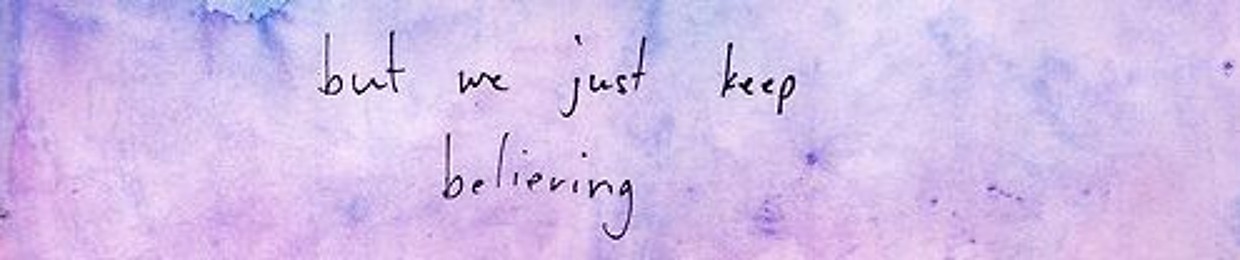 but we just keep
believing